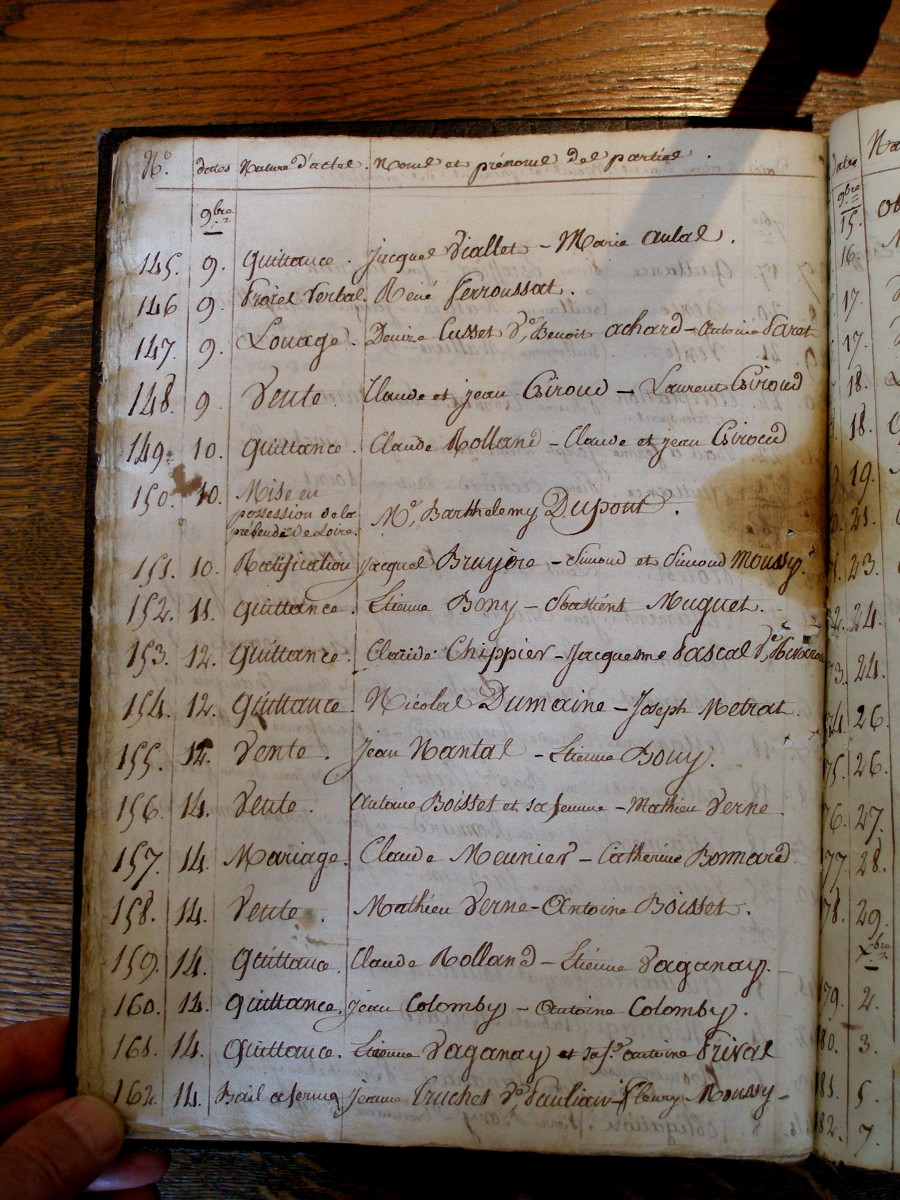 N.° dates Nature d'actes. Noms et prénoms des parties.
9bre
145. 9. Quittance. Jacques Viallet – Marie aulas.
146 9. Procès verbal. René Ferroussat.
147. 9. Louage. Cusset Ve, Benoit achard – Antoine Paret
148. 9. Vente. Claude et jean Giroud – Laurent Giroud
149. 10. Quittance. Claude Rolland – Claude et jean Giroud
150. 10. Mise en
possession de la
prébende de Loire. Me, Barthelemy Dupont.
151. 10. Ratification Jacques Bruyère – Simond et Simond Moussy.
152. 11. Quittance. Etienne Bony – Sbastiens Muguet.
153. 12. Quittance. Claude Chippier – Jacquesme Pascal Ve,
154. 12. Quittance. Nicolas Dumaine – Joseph Metrat.
155. 12. Vente. Jean Nantas – Etienne Bony.
156. 14. Vente. Antoine Boisset et sa femme – Mathieu Verne
157. 14. Mariage. Claude Meunier – Catherine Bonnard.
158. 14. Vente. Mathieu Verne – Antoine Boisset.
159. 14. Quittance. Claude Rolland – Etienne Daganay.
160. 14. Quittance. Jean Colomby – Antoine Colomby.
161. 14. Quittance. Etienne Daganay et sa f.e antoine Prival
162. 14. Bail a ferme Jeanne Truchet Ve – Fleury Moussy –
9bre
15.
16.
17.
17.
18.
18.
19.
21.
23
24.
24.
26
75. 26.
76. 27.
77. 28.
78. 29.
Xbre
179. 2.
180. 3.
181. 5.
182. 7.